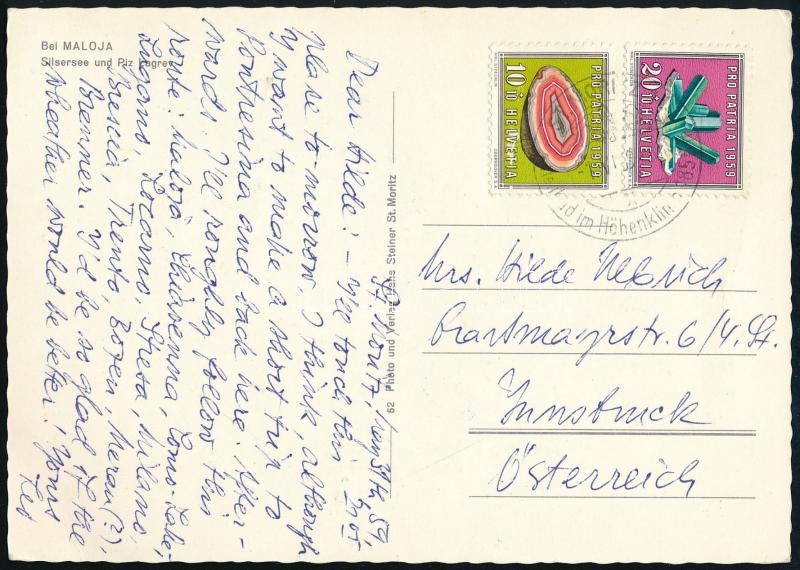 Bei MALOJA
Silsersee und Piz Lagrev
52 Photo und Verlag Hans Steiner St. Moritz
St. Moritz,
Dear Hilde! – I'll touch this
place to morrow. I think, although
I want to make a short trip to
Pontresina and back here. After-
wards I'll roughly follow this
route: Maloja, Chiavenna, Como-Lake,
Lugano, Locarno, Stresa, Milano,
Brescia, Trento, Bozen, Meran (?),
Brenner. I'd be so glad if the
wheather would be better! Yours
Leo
10
+10 HELVETIA
PRO PATRIA 1959
20
+10 HELVETIA
PRO PATRIA 1959
im Höhenklima
Mrs. Hilde Ulbrich
6/4. St.
Innsbruck
Österreich